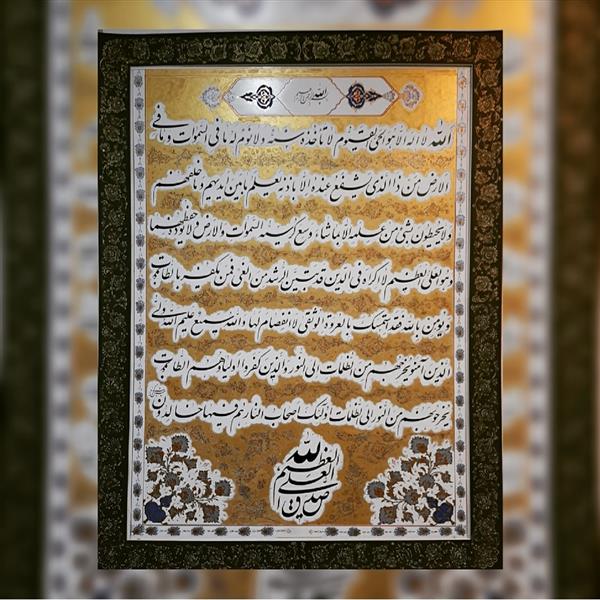 بسم الله الرحمن الرحیم
الله لا اله الا هو الحی القیوم لا تاخذه سنة ولا نوم له ما فی السموات وما فی
الارض من ذا الذی یشفع عنده الا باذنه یعلم ما بین ایدیهم وما خلفهم
ولا یحیطون بشئ من علمه الا بما شاء وسع کرسیه السموات والارض ولا یؤده حفظهما
وهو العلی العظیم لا اکراه فی الدین قد تبین الرشد من الغی فمن یکفر بالطاغوت
ویؤمن بالله فقد استمسک بالعروة الوثقی لا انفصام لها والله سمیع علیم الله ولی
الذین آمنوا یخرجهم من الظلمات الی النور والذین کفروا اولیاؤهم الطاغوت
یخرجونهم من النور الی الظلمات اولئک اصحاب النار هم فیها خالدون
صدق الله العلی العظیم